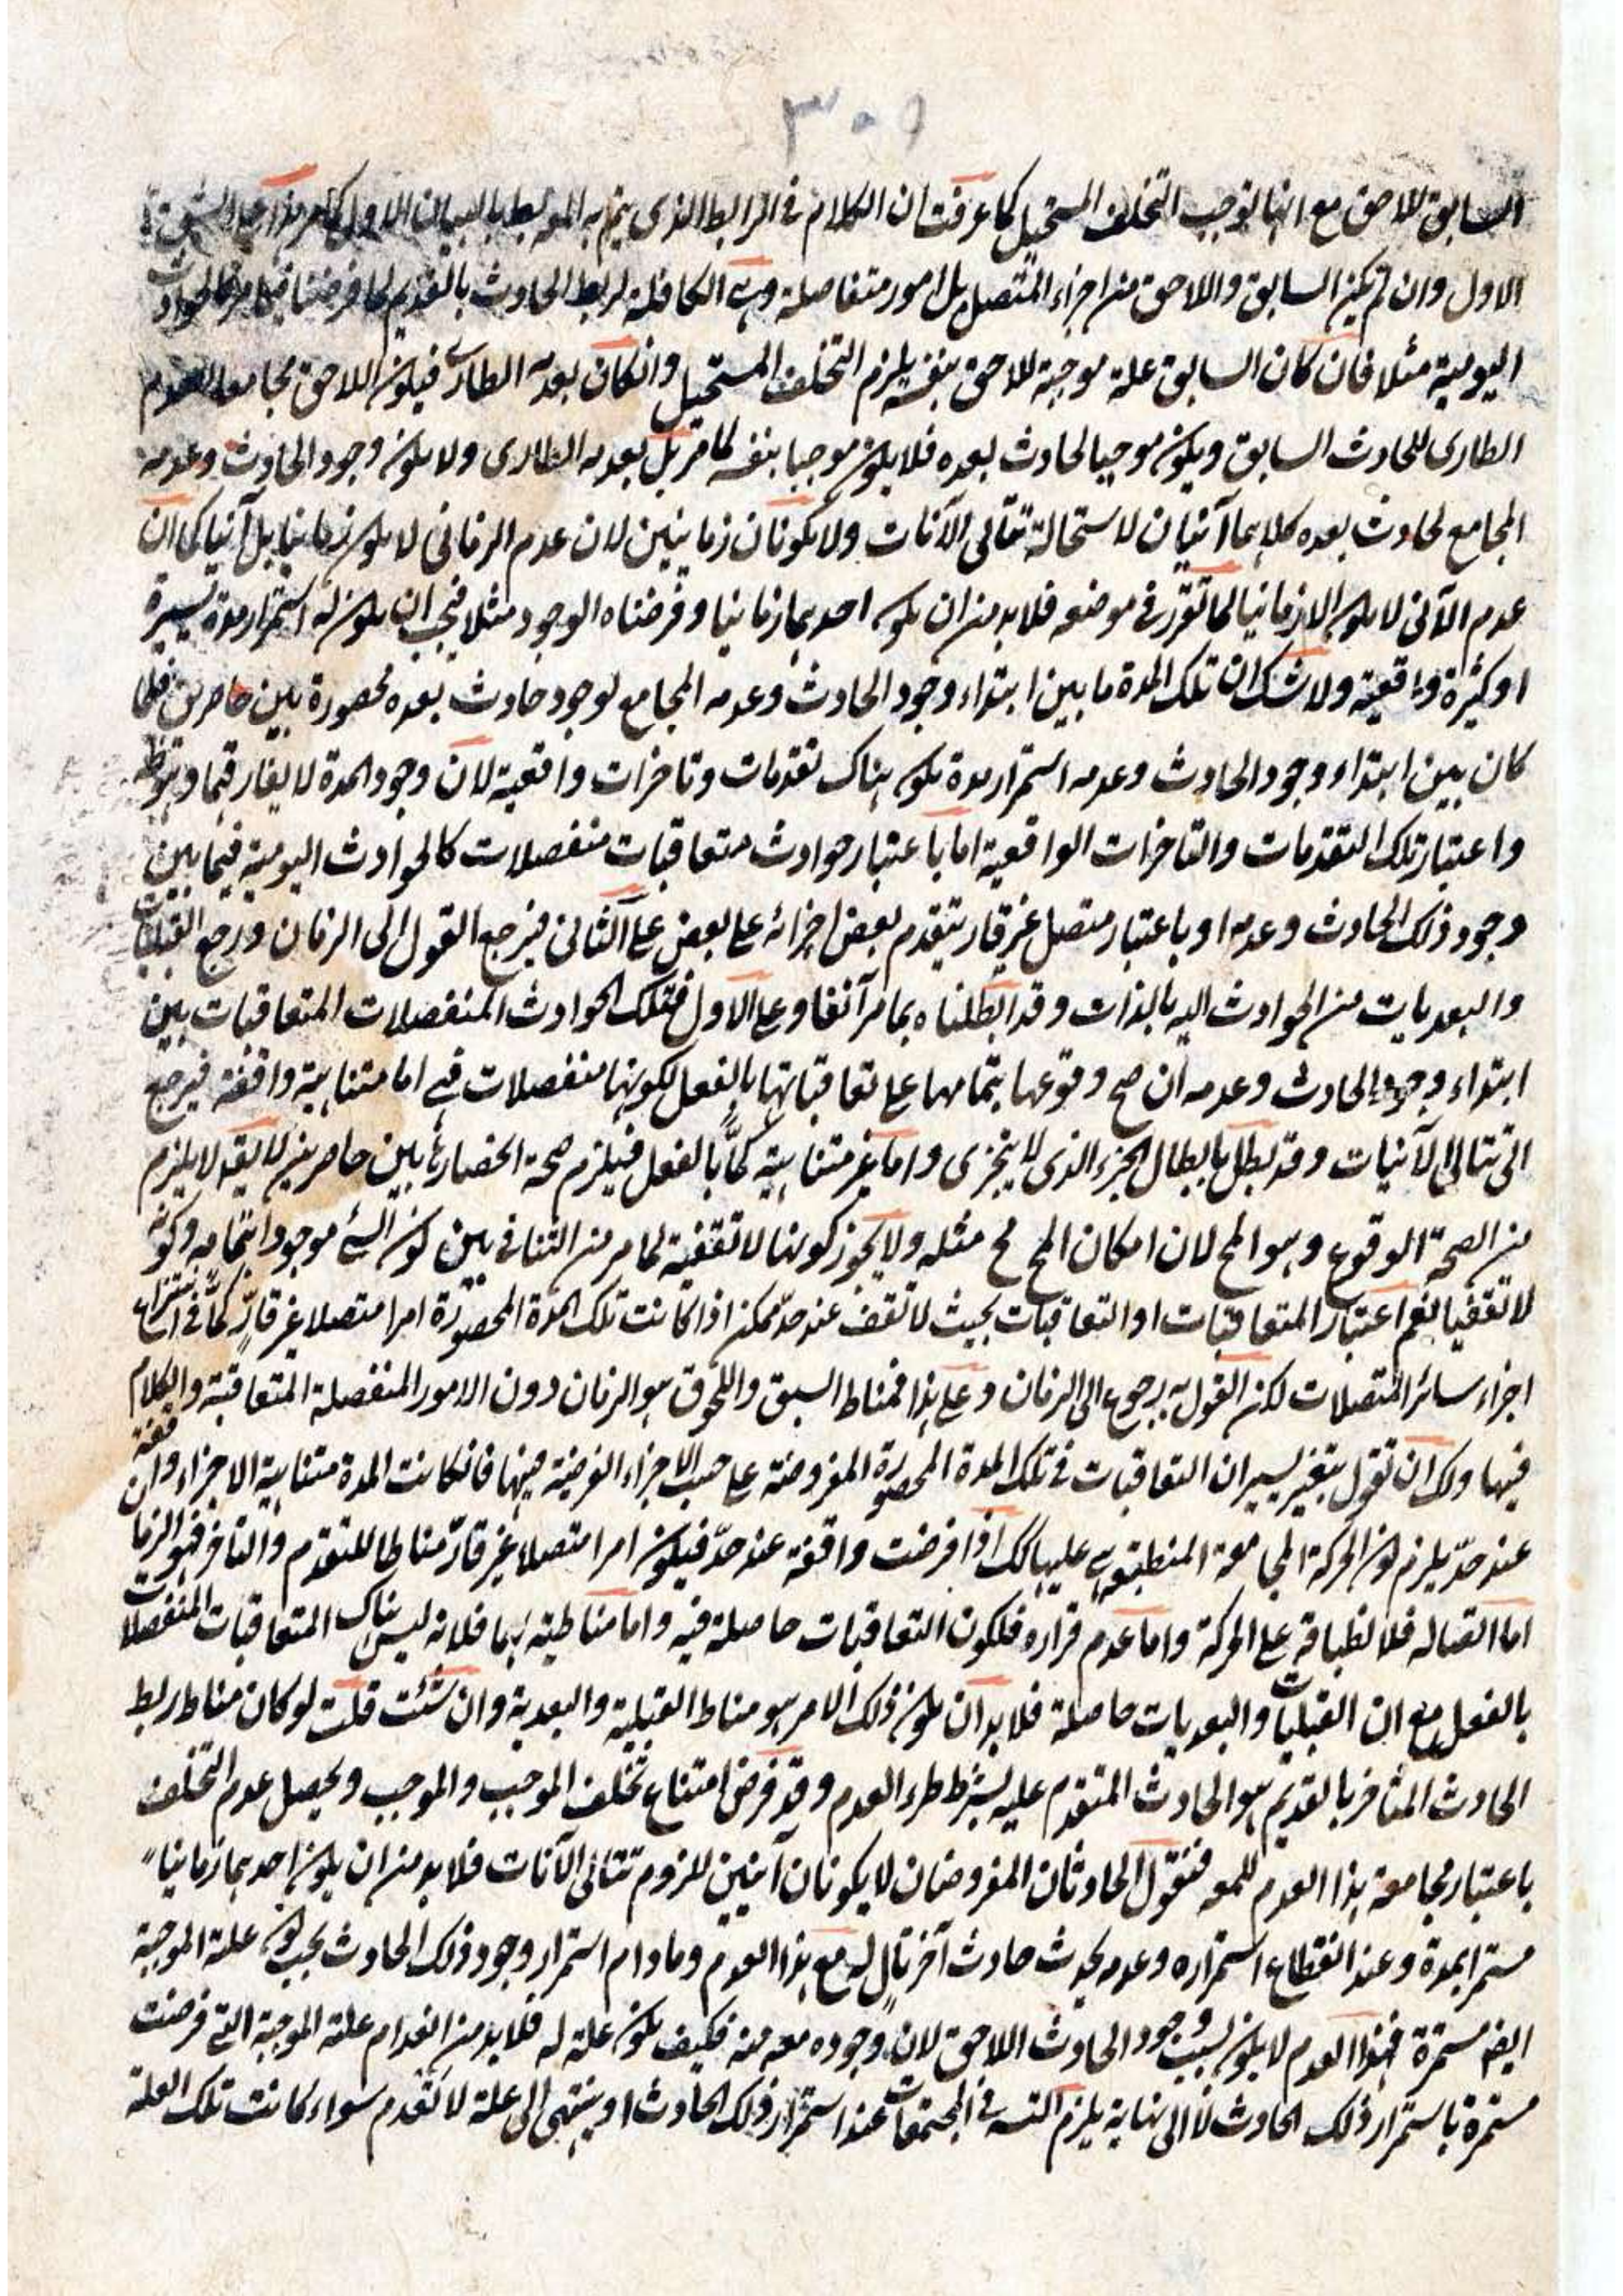 السابق للاحق مع انها توجب التخلف المستحيل كما عرفت ان الكلام في الرابط الذي يتم به المربوط بالبيان الاول
الاول وان لم يكن السابق واللاحق من اجزاء المتصل بل امور متفاصلة وهي الكافلة لربط الحادث بالقديم كما فرضنا
اليومية مثلا فان كان السابق علة موجبة للاحق بنفسه يلزم التخلف المستحيل وانكان بعدمه الطاري فيكون اللاحق مجامعا لعدم
الطاري للحادث السابق ويكون موجبا لحادث بعده فلا يكون موجبا بنفسه كما مر بل بعدمه الطاري ولا يكون وجود الحادث وعدمه
المجامع لحادث بعده كلاهما آنيان لاستحالة تتالي الآنات ولا يكونان زمانيين لان عدم الزماني لا يكون زمانيا بل آنيا كما ان
عدم الآني لا يكون الا زمانيا لما تقرر في موضعه فلا بد من ان يكون احدهما زمانيا وفرضناه الوجود مثلا فيجب ان يكون له استمرار مدة يسيرة
او كثيرة واقعية ولا شك ان تلك المدة ما بين ابتداء وجود الحادث وعدمه المجامع لوجود حادث بعده محصورة بين حاصرين فلما
كان بين ابتداء وجود الحادث وعدمه استمرار مدة يكون هناك تقدمات وتاخرات واقعية لان وجود المدة لا يفارقهما
واعتبار تلك التقدمات والتاخرات الواقعية اما باعتبار حوادث متعاقبات منفصلات كالحوادث اليومية فيما بين
وجود ذلك الحادث وعدمه او باعتبار متصل غير قار يتقدم بعض اجزائه على بعض على الثاني فيرجع القول الى الزمان ورجع القبليات
والبعديات من الحوادث اليه بالذات وقد ابطلناه بما مر آنفا وعلى الاول فتلك الحوادث المنفصلات المتعاقبات بين
ابتداء وجود الحادث وعدمه ان صح وقوعها بتمامها على تعاقباتها بالفعل لكونها منفصلات فهي اما متناهية واقفة فيرجع
الى تتالي الآنيات وقد بطل بابطال الجزء الذي لا يتجزى واما غير متناهية كما بالفعل فيلزم صحة انحصارها بين حاصرين لا يقال لا يلزم
من الصحة الوقوع وهو المح لان امكان المح مح مثله ولا يجوز كونها لا تقفية لما مر من التنافي بين كون الشئ موجودا بتمامه وكونه
لا تقفيا نعم اعتبار المتعاقبات او التعاقبات بحيث لا تقف عند حد ممكن اذا كانت تلك المدة المحصورة امرا متصلا غير قار كما في انتزاع
اجزاء سائر المتصلات لكن القول به رجوع الى الزمان وعلى هذا فمناط السبق واللحوق هو الزمان دون الامور المنفصلة المتعاقبة والكلام
فيها ولك ان تقول بتغيير يسير ان التعاقبات في تلك المدة المحصورة المفروضة على حسب الاجزاء الفرضية فيها فانكانت المدة متناهية الاجزاء واقفة
عند حد يلزم كون الحركة المجامعة المنطبقة هي عليها كك اذا فرضت واقفة عند حد فيكون امرا متصلا غير قار مناطا للتقدم والتاخر فهو الزمان
اما اتصاله فلانطباقه على الحركة واما عدم قراره فلكون التعاقبات حاصلة فيه واما مناطيته لهما فلانه ليس هناك المتعاقبات المنفصلات
بالفعل مع ان القبليات والبعديات حاصلة فلا بد ان يكون ذلك الامر هو مناط القبلية والبعدية وان شئت قلت لو كان مناط ربط
الحادث المتاخر بالقديم هو الحادث المتقدم عليه بشرط طرء العدم وقد فرض امتناع تخلف الموجب والموجب ويحصل عدم التخلف
باعتبار مجامعة هذا العدم للمعه فنقول الحادثان المفروضان لا يكونان آنيين للزوم تتالي الآنات فلا بد من ان يكون احدهما زمانيا
مستمرا بمدة وعند انقطاع استمراره وعدمه يحدث حادث آخر تال له مع هذا العدم وما دام استمرار وجود ذلك الحادث يجب كون علته الموجبة
ايضا مستمرة فهذا العدم لا يكون بسبب وجود الحادث اللاحق لان وجوده معه منه فكيف يكون علة له فلا بد من انعدام علته الموجبة التي فرضت
مستمرة باستمرار ذلك الحادث لا الى نهاية يلزم التسه في المجتمعات عند استمرار ذلك الحادث او ينتهي الى علة لا تنعدم سواء كانت تلك العلة